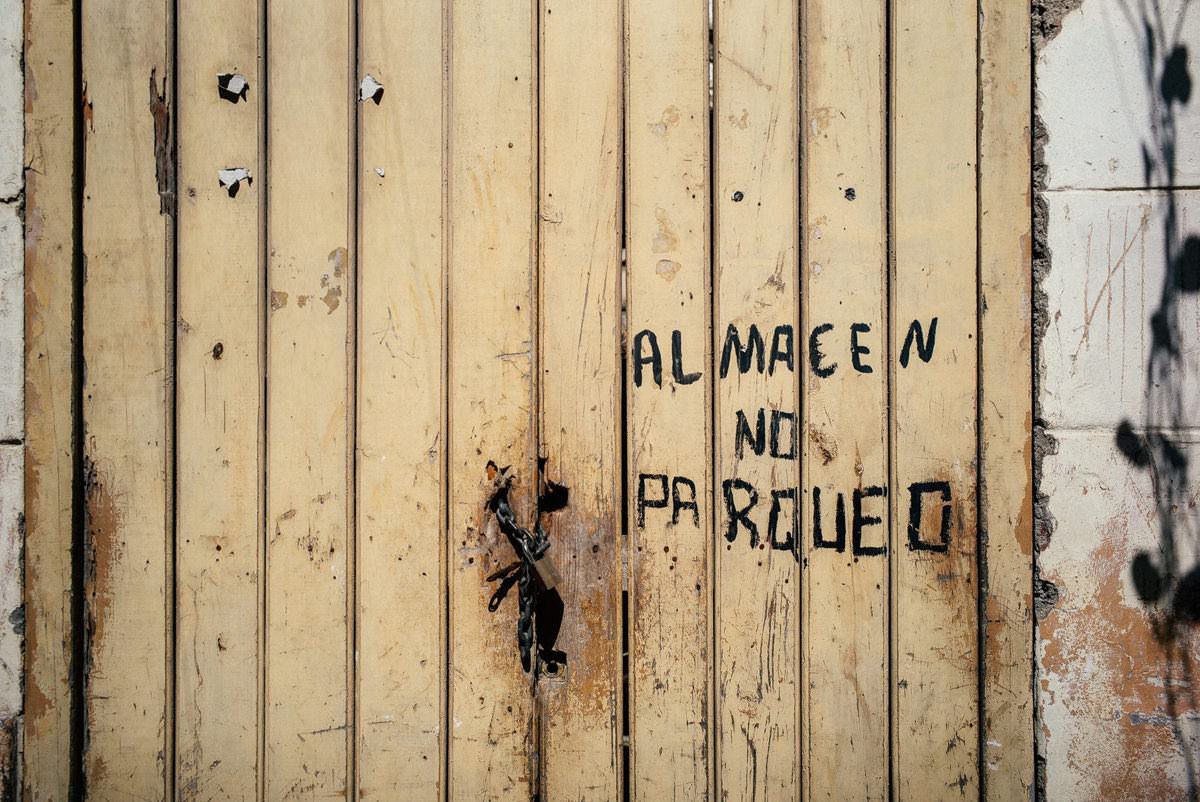 ALMACEN
NO
PARQUEO